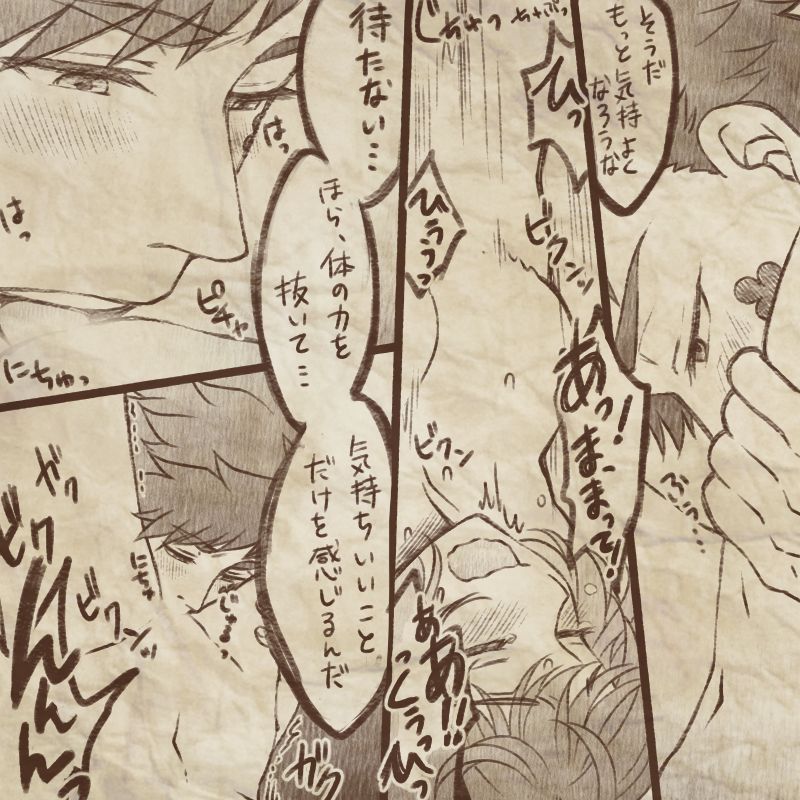 そうだ
もっと気持よく
なろうな
ひっ
ビクンッ
あっ!
ま、まって!
ふっ…
ちゅぷっ
じゅちゅっ
ひううっ
ビクンッ
ああ!!
っくうっ
ひっ
待たない…
ほら、体の力を
抜いて…
気持ちいいこと
だけを感じるんだ
はっ
はっ
ピチャ
にちゅっ
にちゅ
じゅるっ
ガク
ビク
ビクンッ
んんんっ
ガク